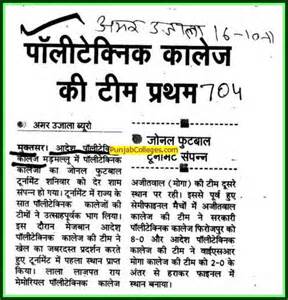 अमर उजाला 16-10-11
पॉलीटेक्निक कालेज
की टीम प्रथम 704
अमर उजाला ब्यूरो
मुक्तसर। आदेश पॉलीटेक्निक
कालेज मड़मल्लू में पॉलीटेक्निक
कालेजों का जोनल फुटबाल
टूर्नामेंट शनिवार को देर शाम
संपन्न हो गया। टूर्नामेंट में राज्य के
सात पॉलीटेक्निक कालेजों की
टीमों ने उत्साहपूर्वक भाग लिया।
इस दौरान मेजबान आदेश
पॉलीटेक्निक कालेज की टीम ने
खेल का जबरदस्त प्रदर्शन करते
हुए टूर्नामेंट में पहला स्थान प्राप्त
किया। लाला लाजपत राय
मेमोरियल पॉलीटेक्निक कालेज
जोनल फुटबाल
टूर्नामेंट संपन्न
अजीतवाल (मोगा) की टीम दूसरे
स्थान पर रही। इससे पूर्व हुए
सेमीफाइनल मैचों में अजीतवाल
कालेज की टीम ने सरकारी
पॉलीटेक्निक कालेज फिरोजपुर को
8-0 और आदेश पॉलीटेक्निक
कालेज की टीम ने वाईएसआर
मोगा कालेज की टीम को 2-0 के
अंतर से हराकर फाइनल में स्थान
बनाया था।
PunjabColleges.com